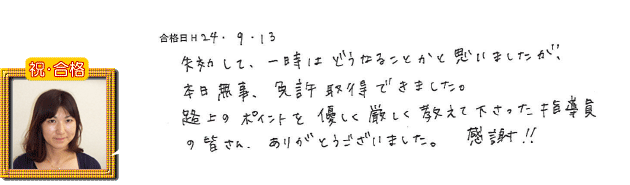 合格日 H 24. 9. 13
祝・合格
失効して、一時はどうなることかと思いましたが、
本日無事、免許取得できました。
路上のポイントを優しく厳しく教えて下さった指導員
の皆さん、ありがとうございました。 感謝!!